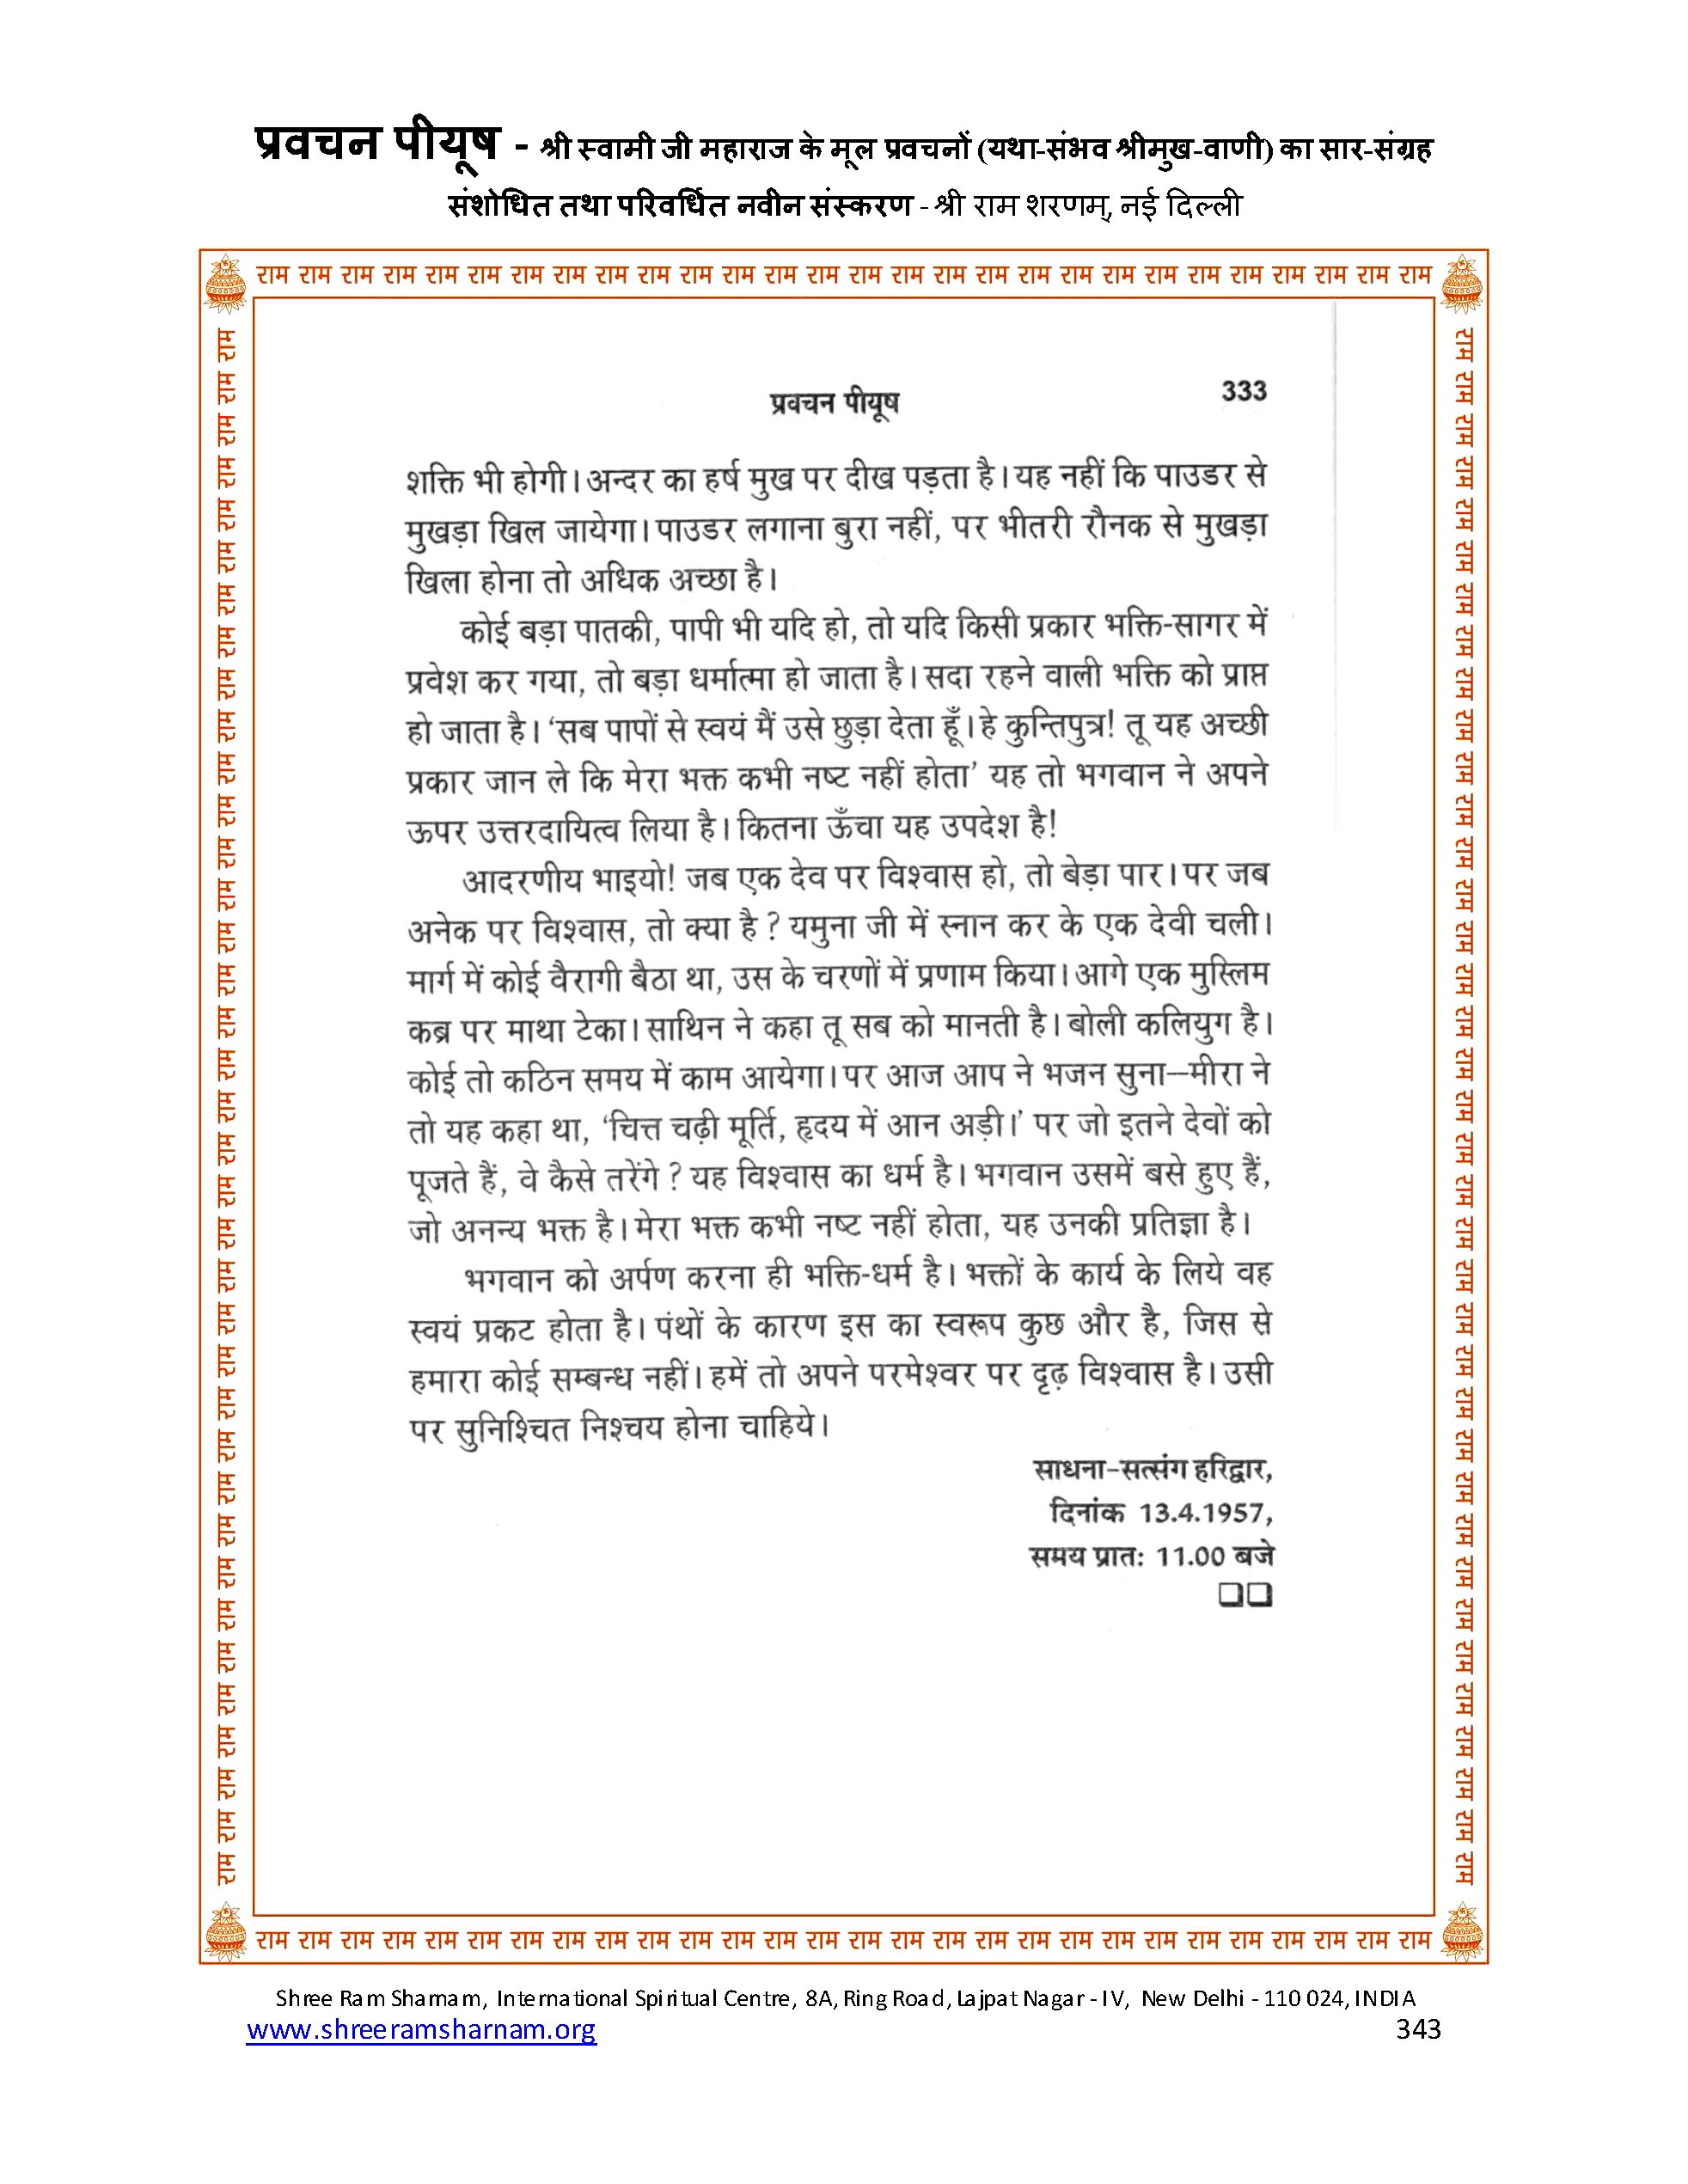 प्रवचन पीयूष - श्री स्वामी जी महाराज के मूल प्रवचनों (यथा-संभव श्रीमुख-वाणी) का सार-संग्रह
संशोधित तथा परिवर्धित नवीन संस्करण - श्री राम शरणम्, नई दिल्ली
राम राम राम राम राम राम राम राम राम राम राम राम राम राम राम राम राम राम राम राम राम राम राम राम राम राम राम राम
प्रवचन पीयूष 333
शक्ति भी होगी। अन्दर का हर्ष मुख पर दीख पड़ता है। यह नहीं कि पाउडर से
मुखड़ा खिल जायेगा। पाउडर लगाना बुरा नहीं, पर भीतरी रौनक से मुखड़ा
खिला होना तो अधिक अच्छा है।
कोई बड़ा पातकी, पापी भी यदि हो, तो यदि किसी प्रकार भक्ति-सागर में
प्रवेश कर गया, तो बड़ा धर्मात्मा हो जाता है। सदा रहने वाली भक्ति को प्राप्त
हो जाता है। ‘सब पापों से स्वयं मैं उसे छुड़ा देता हूँ। हे कुन्तिपुत्र! तू यह अच्छी
प्रकार जान ले कि मेरा भक्त कभी नष्ट नहीं होता’ यह तो भगवान ने अपने
ऊपर उत्तरदायित्व लिया है। कितना ऊँचा यह उपदेश है!
आदरणीय भाइयो! जब एक देव पर विश्वास हो, तो बेड़ा पार। पर जब
अनेक पर विश्वास, तो क्या है ? यमुना जी में स्नान कर के एक देवी चली।
मार्ग में कोई वैरागी बैठा था, उस के चरणों में प्रणाम किया। आगे एक मुस्लिम
कब्र पर माथा टेका। साथिन ने कहा तू सब को मानती है। बोली कलियुग है।
कोई तो कठिन समय में काम आयेगा। पर आज आप ने भजन सुना—मीरा ने
तो यह कहा था, ‘चित्त चढ़ी मूर्ति, हृदय में आन अड़ी।’ पर जो इतने देवों को
पूजते हैं, वे कैसे तरेंगे ? यह विश्वास का धर्म है। भगवान उसमें बसे हुए हैं,
जो अनन्य भक्त है। मेरा भक्त कभी नष्ट नहीं होता, यह उनकी प्रतिज्ञा है।
भगवान को अर्पण करना ही भक्ति-धर्म है। भक्तों के कार्य के लिये वह
स्वयं प्रकट होता है। पंथों के कारण इस का स्वरूप कुछ और है, जिस से
हमारा कोई सम्बन्ध नहीं। हमें तो अपने परमेश्वर पर दृढ़ विश्वास है। उसी
पर सुनिश्चित निश्चय होना चाहिये।
साधना-सत्संग हरिद्वार,
दिनांक 13.4.1957,
समय प्रातः 11.00 बजे
❑❑
राम राम राम राम राम राम राम राम राम राम राम राम राम राम राम राम राम राम राम राम राम राम राम राम राम राम राम राम राम राम राम राम राम राम राम राम राम
राम राम राम राम राम राम राम राम राम राम राम राम राम राम राम राम राम राम राम राम राम राम राम राम राम राम राम राम राम राम राम राम राम राम राम राम राम
राम राम राम राम राम राम राम राम राम राम राम राम राम राम राम राम राम राम राम राम राम राम राम राम राम राम राम राम
Shree Ram Sharnam, International Spiritual Centre, 8A, Ring Road, Lajpat Nagar - IV, New Delhi - 110 024, INDIA
www.shreeramsharnam.org 343